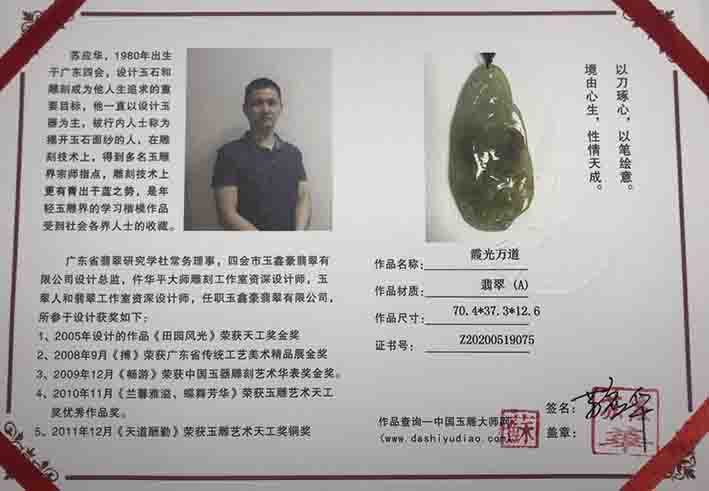 苏应华，1980年出生
于广东四会，设计玉石和
雕刻成为他人生追求的重
要目标，他一直以设计玉
器为主，被行内人士称为
揭开玉石面纱的人，在雕
刻技术上，得到多名玉雕
界宗师指点，雕刻技术上
更有青出于蓝之势，是年
轻玉雕界的学习楷模作品
受到社会各界人士的收藏。
广东省翡翠研究学社常务理事，四会市玉鑫豪翡翠有
限公司设计总监，仵华平大师雕刻工作室资深设计师，玉
翠人和翡翠工作室资深设计师，任职玉鑫豪翡翠有限公司，
所参于设计获奖如下：
1、2005年设计的作品《田园风光》荣获天工奖金奖
2、2008年9月《搏》荣获广东省传统工艺美术精品展金奖
3、2009年12月《畅游》荣获中国玉器雕刻艺术华表奖金奖。
4、2010年11月《兰馨雅溢、蝶舞芳华》荣获玉雕艺术天工
奖优秀作品奖。
5、2011年12月《天道酬勤》荣获玉雕艺术天工奖铜奖
以刀琢心，以笔绘意。
境由心生，性情天成。
作品名称：霞光万道
作品材质：翡翠 (A)
作品尺寸：70.4*37.3*12.6
证书号：Z20200519075
作品查询—中国玉雕大师网
(www.dashiyudiao.com)
签名：
盖章：
蘇
華